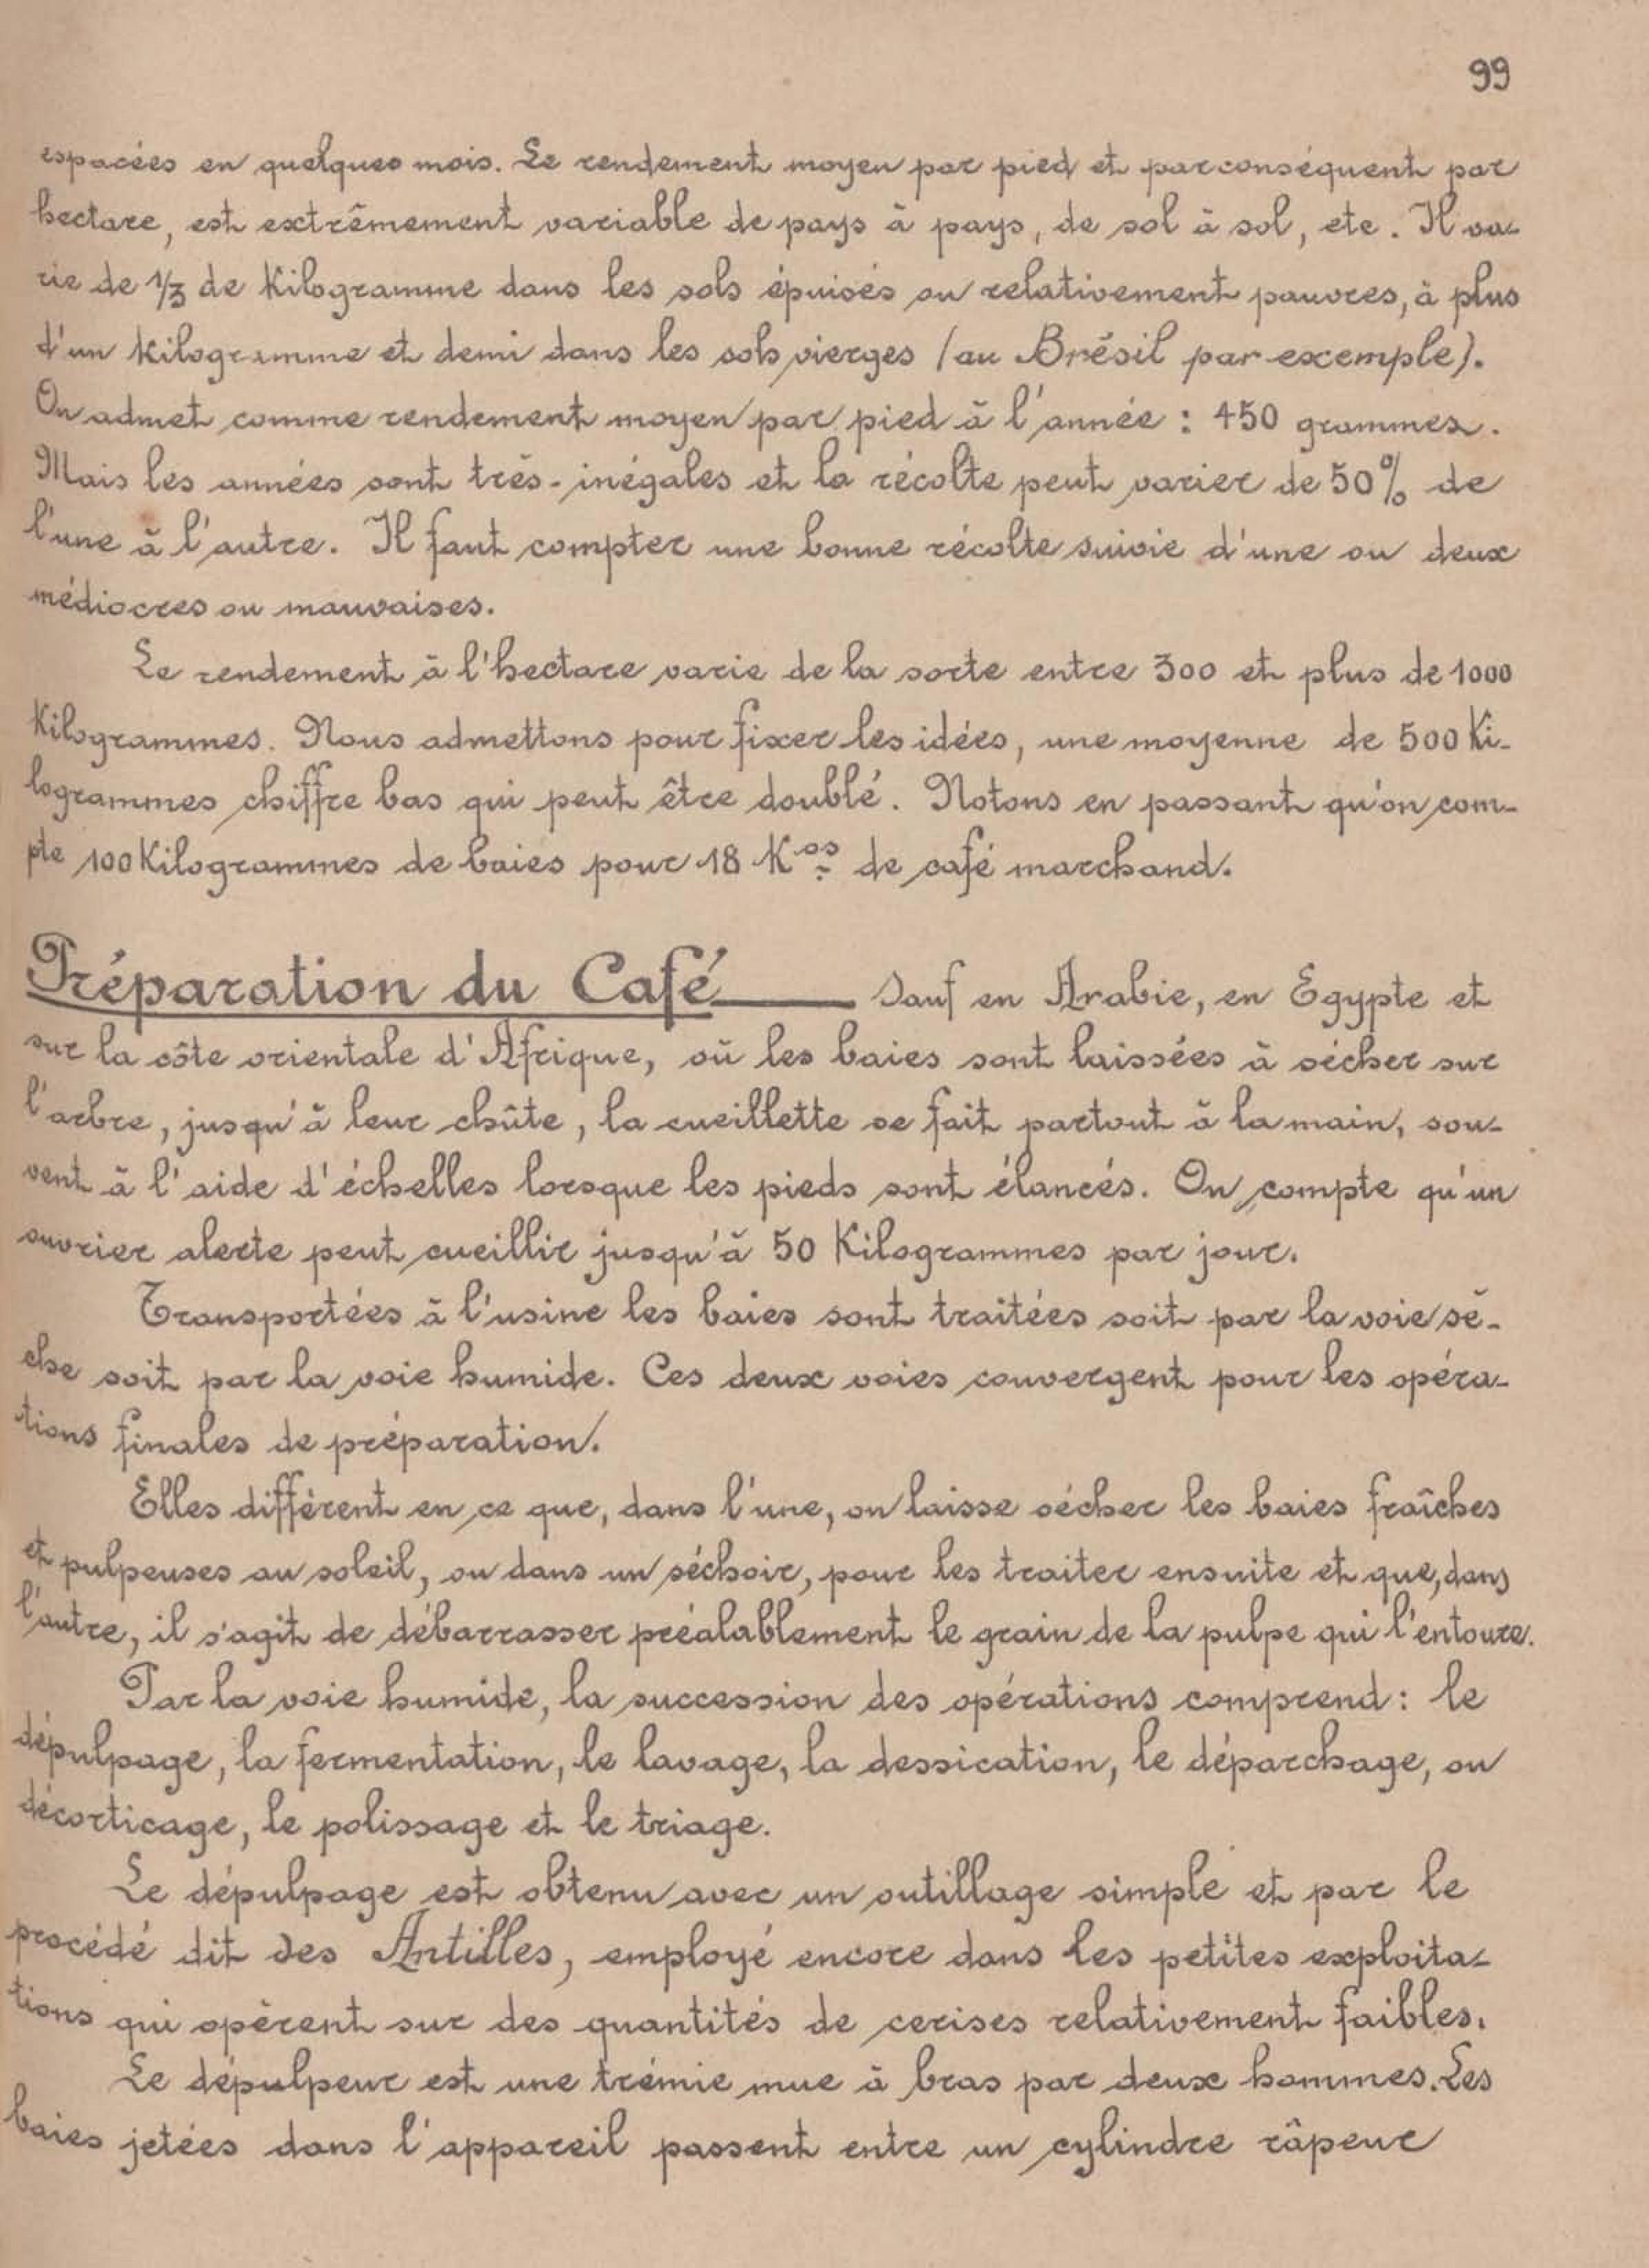 99
espacées en quelques mois. Le rendement moyen par pied et parconséquent par
hectare, est extrêmement variable de pays à pays, de sol à sol, etc. Il va-
rie de 1/3 de Kilogramme dans les sols épuisés ou relativement pauvres, à plus
d'un Kilogramme et demi dans les sols vierges (au Brésil par exemple).
On admet comme rendement moyen par pied à l'année : 450 grammes.
Mais les années sont très-inégales et la récolte peut varier de 50% de
l'une à l'autre. Il faut compter une bonne récolte suivie d'une ou deux
médiocres ou mauvaises.
Le rendement à l'hectare varie de la sorte entre 300 et plus de 1000
Kilogrammes. Nous admettons pour fixer les idées, une moyenne de 500 Ki-
logrammes chiffre bas qui peut être doublé. Notons en passant qu'on com-
pte 100 Kilogrammes de baies pour 18 Kos de café marchand.
Préparation du Café ___ Sauf en Arabie, en Egypte et
sur la côte orientale d'Afrique, où les baies sont laissées à sécher sur
l'arbre, jusqu'à leur chûte, la cueillette se fait partout à la main, sou-
vent à l'aide d'échelles lorsque les pieds sont élancés. On compte qu'un
ouvrier alerte peut cueillir jusqu'à 50 Kilogrammes par jour.
Transportées à l'usine les baies sont traitées soit par la voie sè-
che soit par la voie humide. Ces deux voies convergent pour les opéra-
tions finales de préparation.
Elles diffèrent en ce que, dans l'une, on laisse sécher les baies fraîches
et pulpeuses au soleil, ou dans un séchoir, pour les traiter ensuite et que, dans
l'autre, il s'agit de débarrasser préalablement le grain de la pulpe qui l'entoure.
Par la voie humide, la succession des opérations comprend : le
dépulpage, la fermentation, le lavage, la dessication, le déparchage, ou
décorticage, le polissage et le triage.
Le dépulpage est obtenu avec un outillage simple et par le
procédé dit des Antilles, employé encore dans les petites exploita-
tions qui opèrent sur des quantités de cerises relativement faibles.
Le dépulpeur est une trémie mue à bras par deux hommes. Les
baies jetées dans l'appareil passent entre un cylindre râpeur